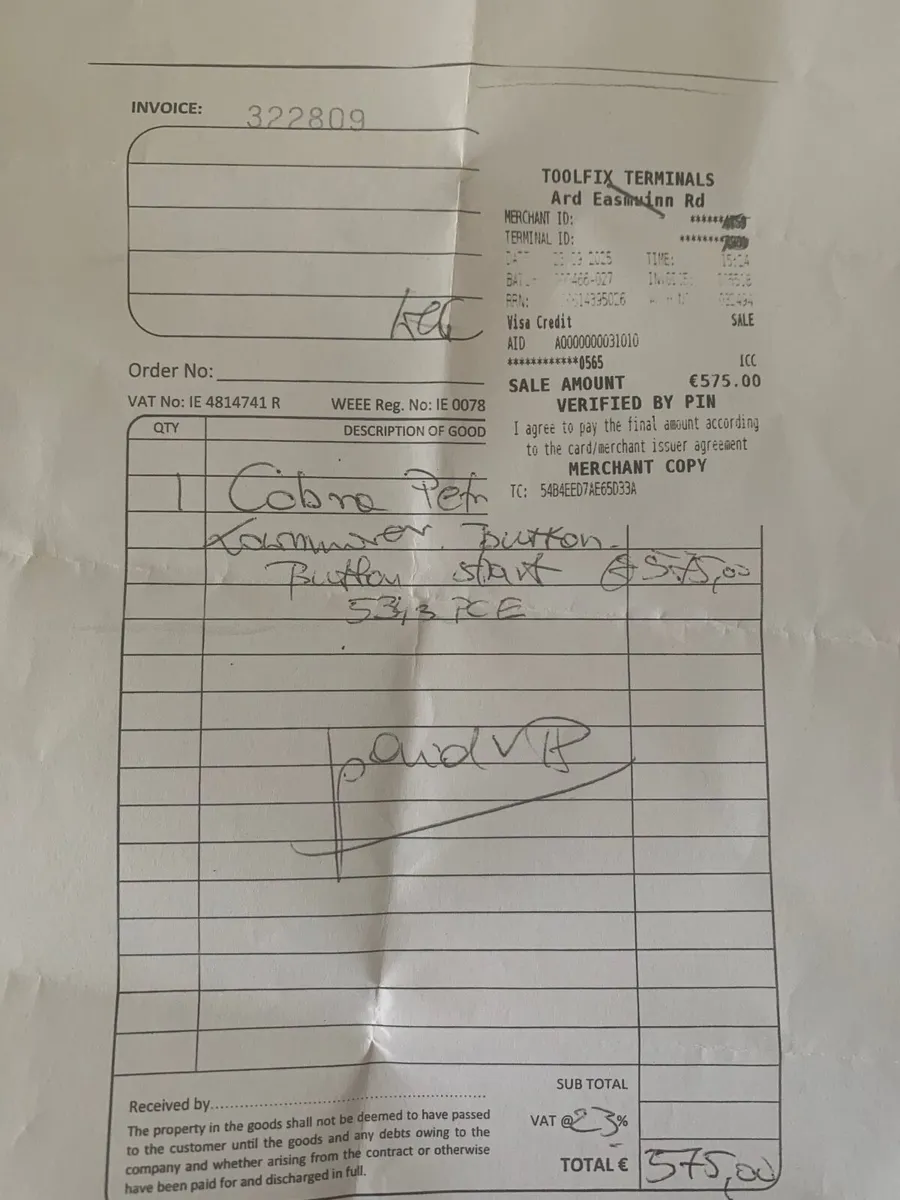 INVOICE: 322809
TOOLFIX TERMINALS
Ard Easmuinn Rd
MERCHANT ID: ******
TERMINAL ID: *******
2025 TIME: 15:24
Visa Credit SALE
AID A0000000031010
************0565 ICC
SALE AMOUNT €575.00
VERIFIED BY PIN
I agree to pay the final amount according
to the card/merchant issuer agreement
MERCHANT COPY
TC: 54B4EED7AE65D33A
Order No:
VAT No: IE 4814741 R WEEE Reg. No: IE 0078
QTY DESCRIPTION OF GOOD
1 Cobra Petr
Lawnmower. Button
Button start 575,00
PCE
paid
SUB TOTAL
Received by
VAT @ 23%
TOTAL € 575,00
The property in the goods shall not be deemed to have passed
to the customer until the goods and any debts owing to the
company and whether arising from the contract or otherwise
have been paid for and discharged in full.